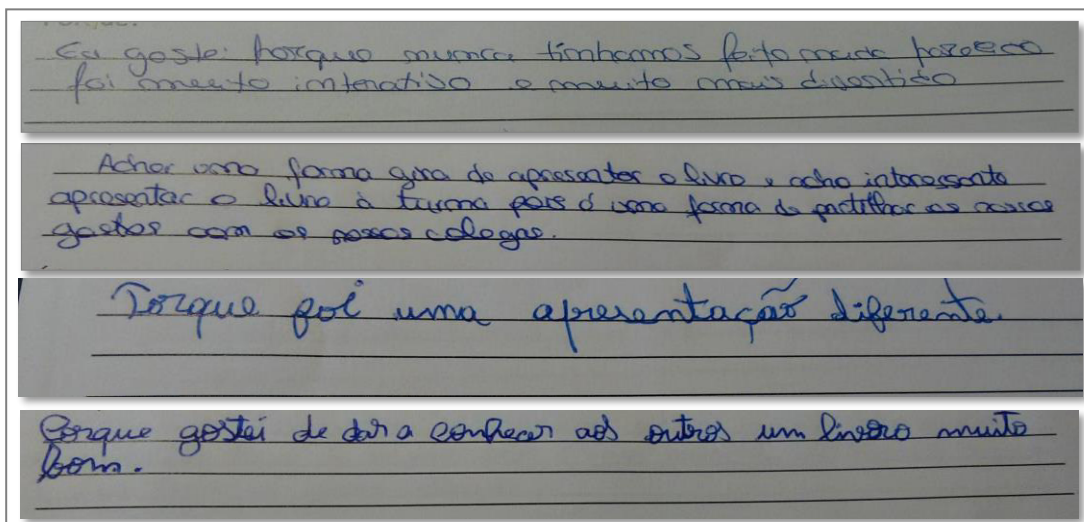 Eu gostei porque nunca tinhamos feito nada parecido
foi muito interativo e muito mais divertido
Achei uma forma gira de apresentar o livro e acho interessante
apresentar o livro à turma pois é uma forma de partilhar os nossos
gostos com os nossos colegas.
Porque foi uma apresentação diferente.
Porque gostei de dar a conhecer aos outros um livro muito
bom.